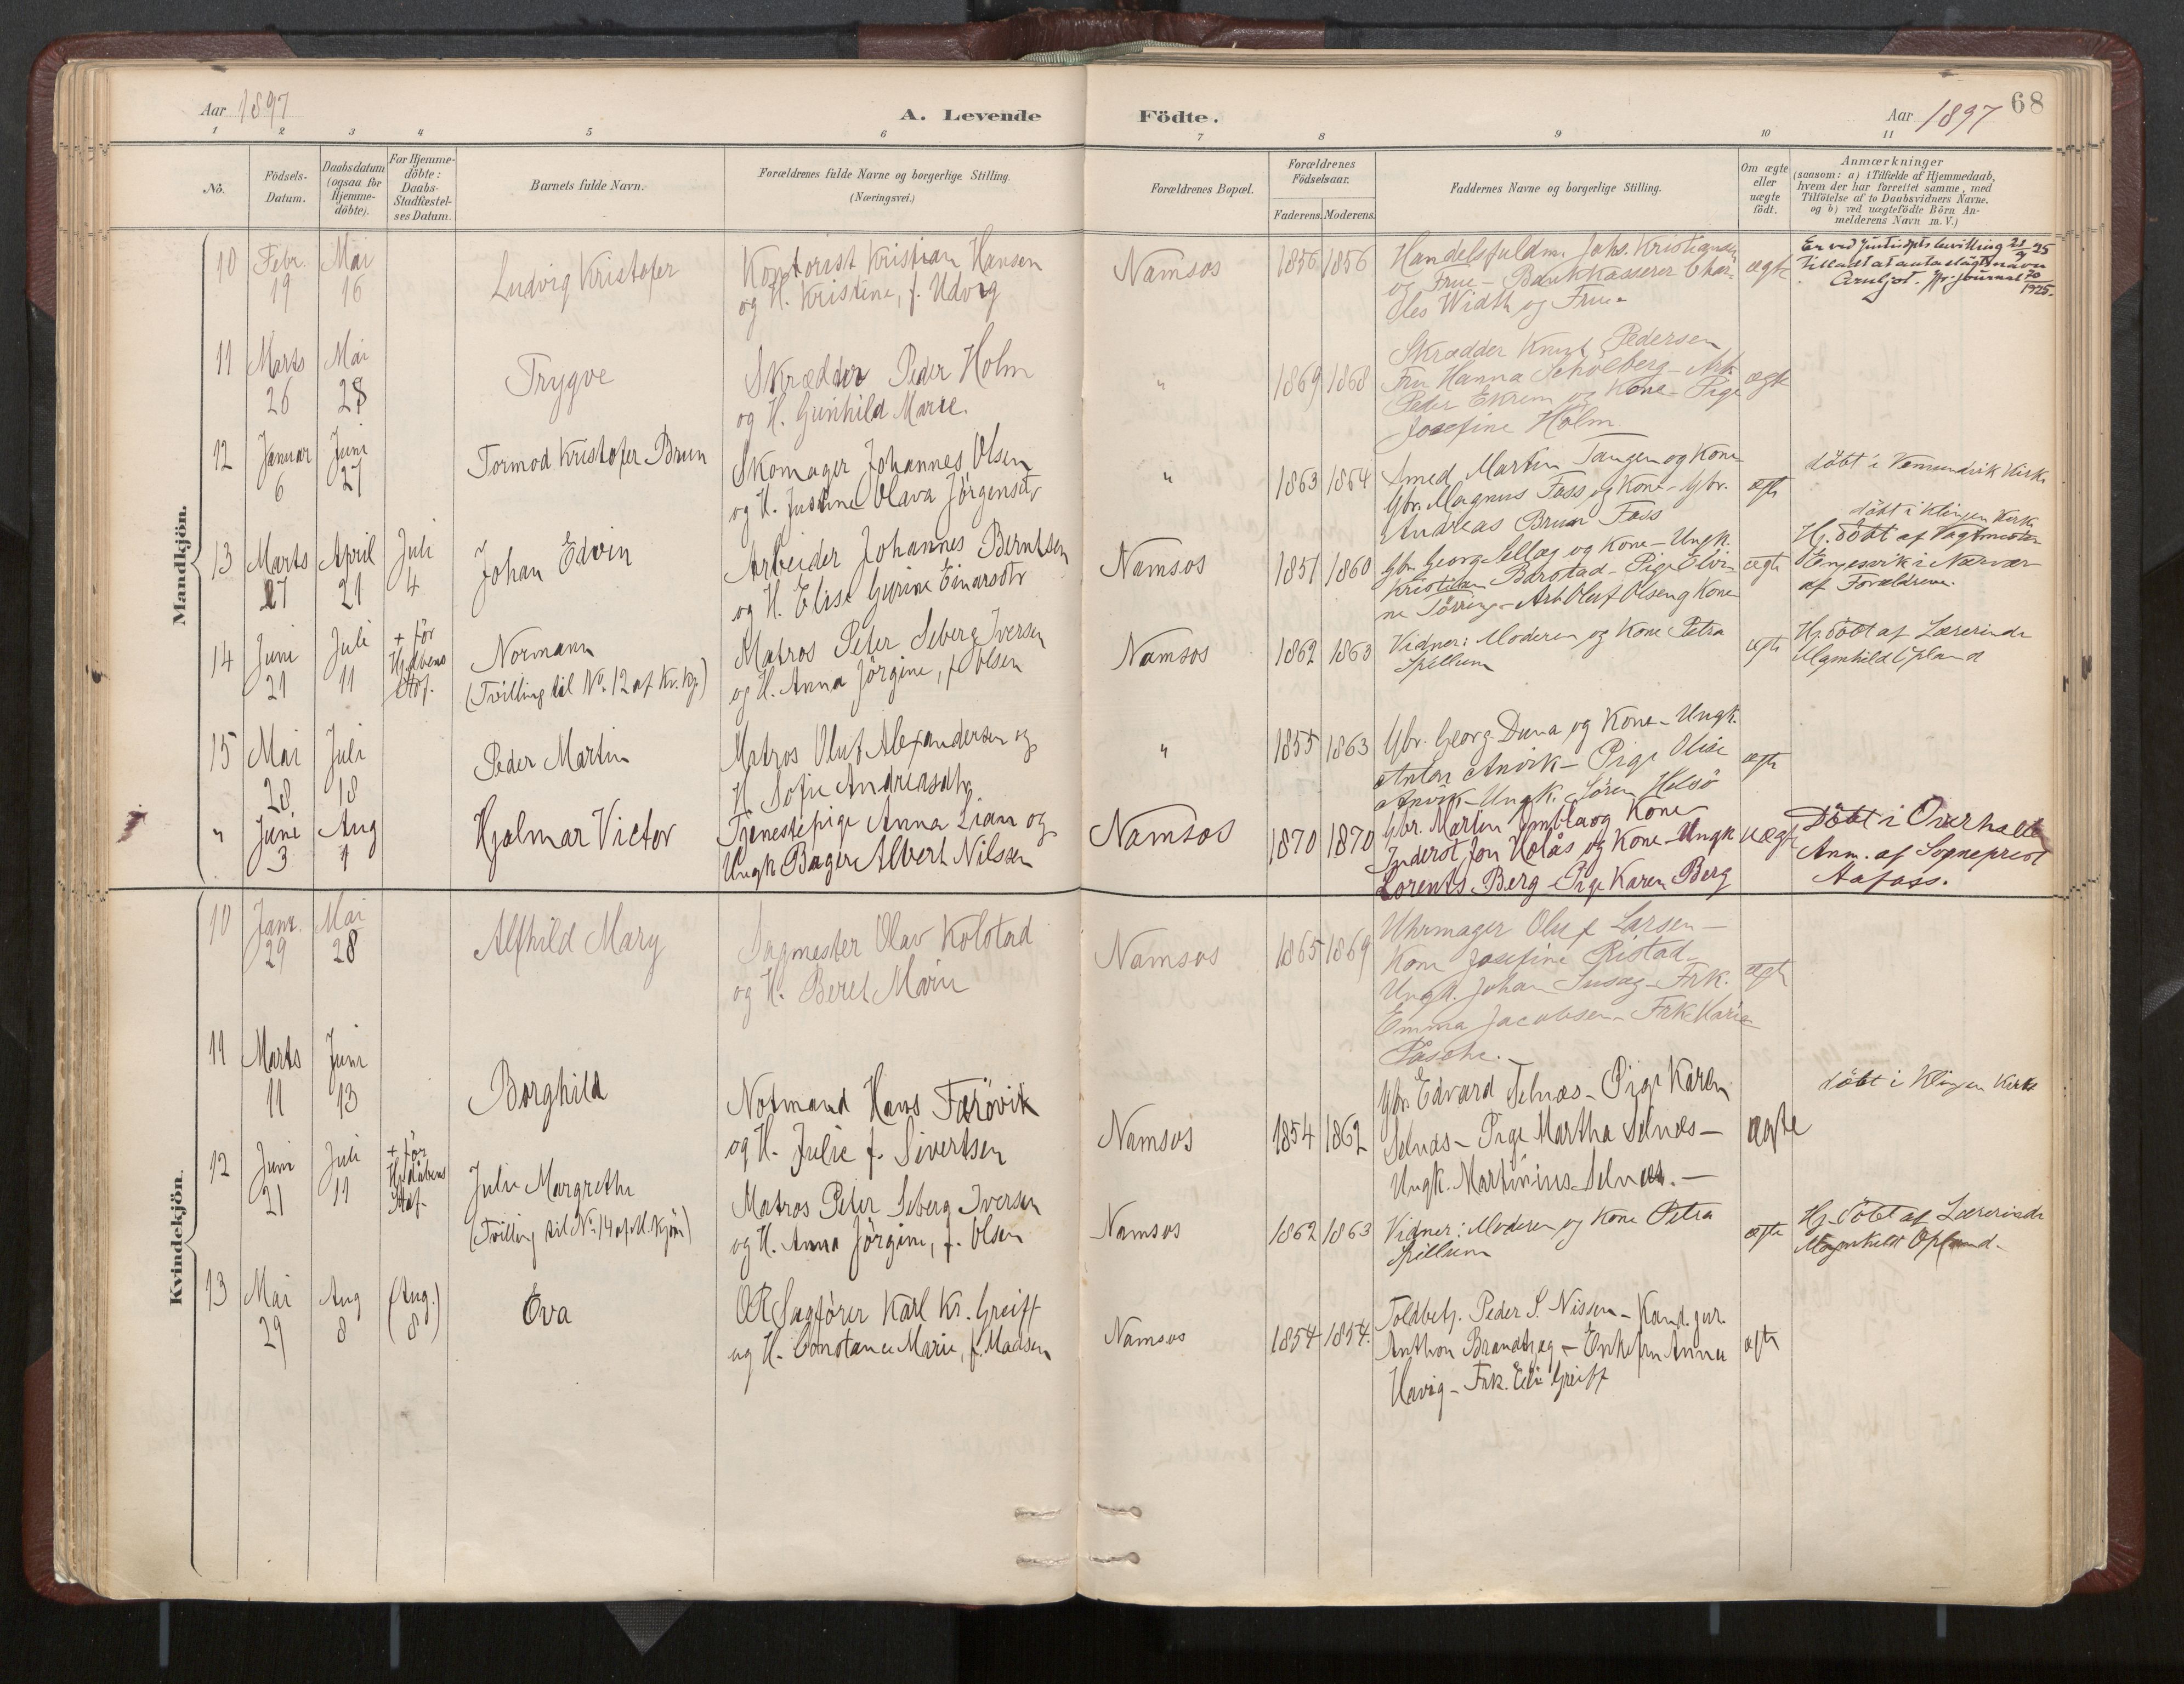 Aar 1897
A. Levende Födte.
Aar 1897
68
1 2 3 4 5 6 7 8 9 10 11
No.
Födsels-
Datum.
Daabsdatum
(ogsaa for
Hjemme-
döbte).
For Hjemme-
döbte:
Daabs-
Stadfæstel-
ses Datum.
Barnets fulde Navn.
Forældrenes fulde Navne og borgerlige Stilling.
(Næringsvei.)
Forældrenes Bopæl.
Forældrenes
Födselsaar.
Faderens. Moderens.
Faddernes Navne og borgerlige Stilling.
Om ægte
eller
uægte
födt.
Anmærkninger
(saasom: a) i Tilfælde af Hjemmedaab,
hvem der har forrettet samme, med
Tilföielse af to Daabsvidners Navne.
og b) ved uægtefödte Börn An-
melderens Navn m.V.)
Mandkjön.
10 Febr. 19 Mai 16
Ludvig Kristofer
Kontorist Kristian Hansen
og H. Kristine, f. Udvig
Namsos
1856 1856
Handelsfuldm. Johs. Kristiansen
og Frue - Bankkasserer Char-
les Width og Frue
ægte
Er ved Justisdpts bevilling 21/4 25
tilladt at anta slägtsnavn
Arnljot. Jfr. journal 70/1925.
11 Marts 26 Mai 28
Trygve
Skrædder Peder Holm
og H. Gunhild Marie.
"
1869 1868
Skrædder Knut Pedersen
Fru Hanna Schölberg - Arb.
Peder Ekrem og Kone - Pige
Josefine Holm
ægte
12 Januar 6 Juni 27
Tormod Kristofer Brun
Skomager Johannes Olsen
og H. Justine Olava Jörgensdtr
"
1863 1864
Smed Martin Tangen og Kone
Gbr. Magnus Foss og Kone - Gbr.
Andreas Brun Foss
ægte
döbt i Vemundvik Kirke
13 Marts 27 April 21 Juli 4
Johan Edvin
Arbeider Johannes Berntsen
og H. Elise Gurine Einarsdtr
Namsos
1851 1860
Gbr. Georg Sellæg og Kone - Ungk.
Kristian Barstad - Pige Elvi-
ne Törring - Arb Oluf Olsen og Kone
ægte
döbt i Klingen Kirke
Hj. döbt af Vagtmester
i Nærvær
af Forældrene.
14 Juni 21 Juli 11
+ för
Hj.dåbens
Stdf.
Normann
(Tvilling til No. 12 af Kv. Kj.)
Matros Peter Seberg Iversen
og H. Anna Jörgine, f. Olsen
Namsos
1862 1863
Vidner: Moderen og Kone Petra
Spillum
ægte
Hj. döbt af Lærerinde
Magnhild Opland
15 Mai 28 Juli 18
Peder Martin
Matros Oluf Alexandersen og
H. Sofie Andreasdtr
"
1855 1863
Gbr. Georg Duna og Kone - Ungk.
Anton Anvik - Pige Olise
Anvik - Ungk. Sören Helsö
ægte
" Juni 3 Aug 1
Hjalmar Victor
Tjenestepige Anna Lian og
Ungk. Bager Albert Nilssen
Namsos
1870 1870
Gbr. MartinÖmbla og Kone
Inderst Jon Holås og Kone - Ungk
Lorents Berg - Pige Karen Berg
uægte
Döbt i Overhalla
Anm. af Sogneprest
Aafoss.
Kvindekjön.
10 Janr. 29 Mai 28
Alfhild Mary
Sagmester Olav Kolstad
og H. Beret Marie
Namsos
1865 1869
Uhrmager Oluf Larsen -
Kone Josefine Ristad -
Ungk. Johan Susæg - Frk.
Emma Jacobsen - Frk Marie
Pasche. -
ægte
11 Marts 11 Juni 13
Borghild
Notmand Hans Færövik
og H. Julie f. Sivertsen
Namsos
1854 1862
Gbr. Edvard Selnæs - Pige Karen
Selnæs - Pige Martha Selnæs -
Ungk. Martinius Selnæs. -
ægte
döbt i Klingen Kirke
12 Juni 21 Juli 11
+ för
Hj.dåbens
Stdf.
Julie Margrethe
(Tvilling til No. 14 af M. Kjön)
Matros Peter Seberg Iversen
og H. Anna Jörgine, f. Olsen
Namsos
1862 1863
Vidner: Moderen og Kone Petra
Spillum
ægte
Hj. döbt af Lærerinde
Magnhild Opland.
13 Mai 29 Aug 8 (Aug. 8)
Eva
OR Sagförer Karl Kr. Greiff
og H. Constance Marie, f. Madsen
Namsos
1854 1854.
Toldbetj. Peder S. Nissen - Kand. jur.
Anthon Brandtzæg - Enkefru Anna
Havig - Frk. Elie Greiff
ægte